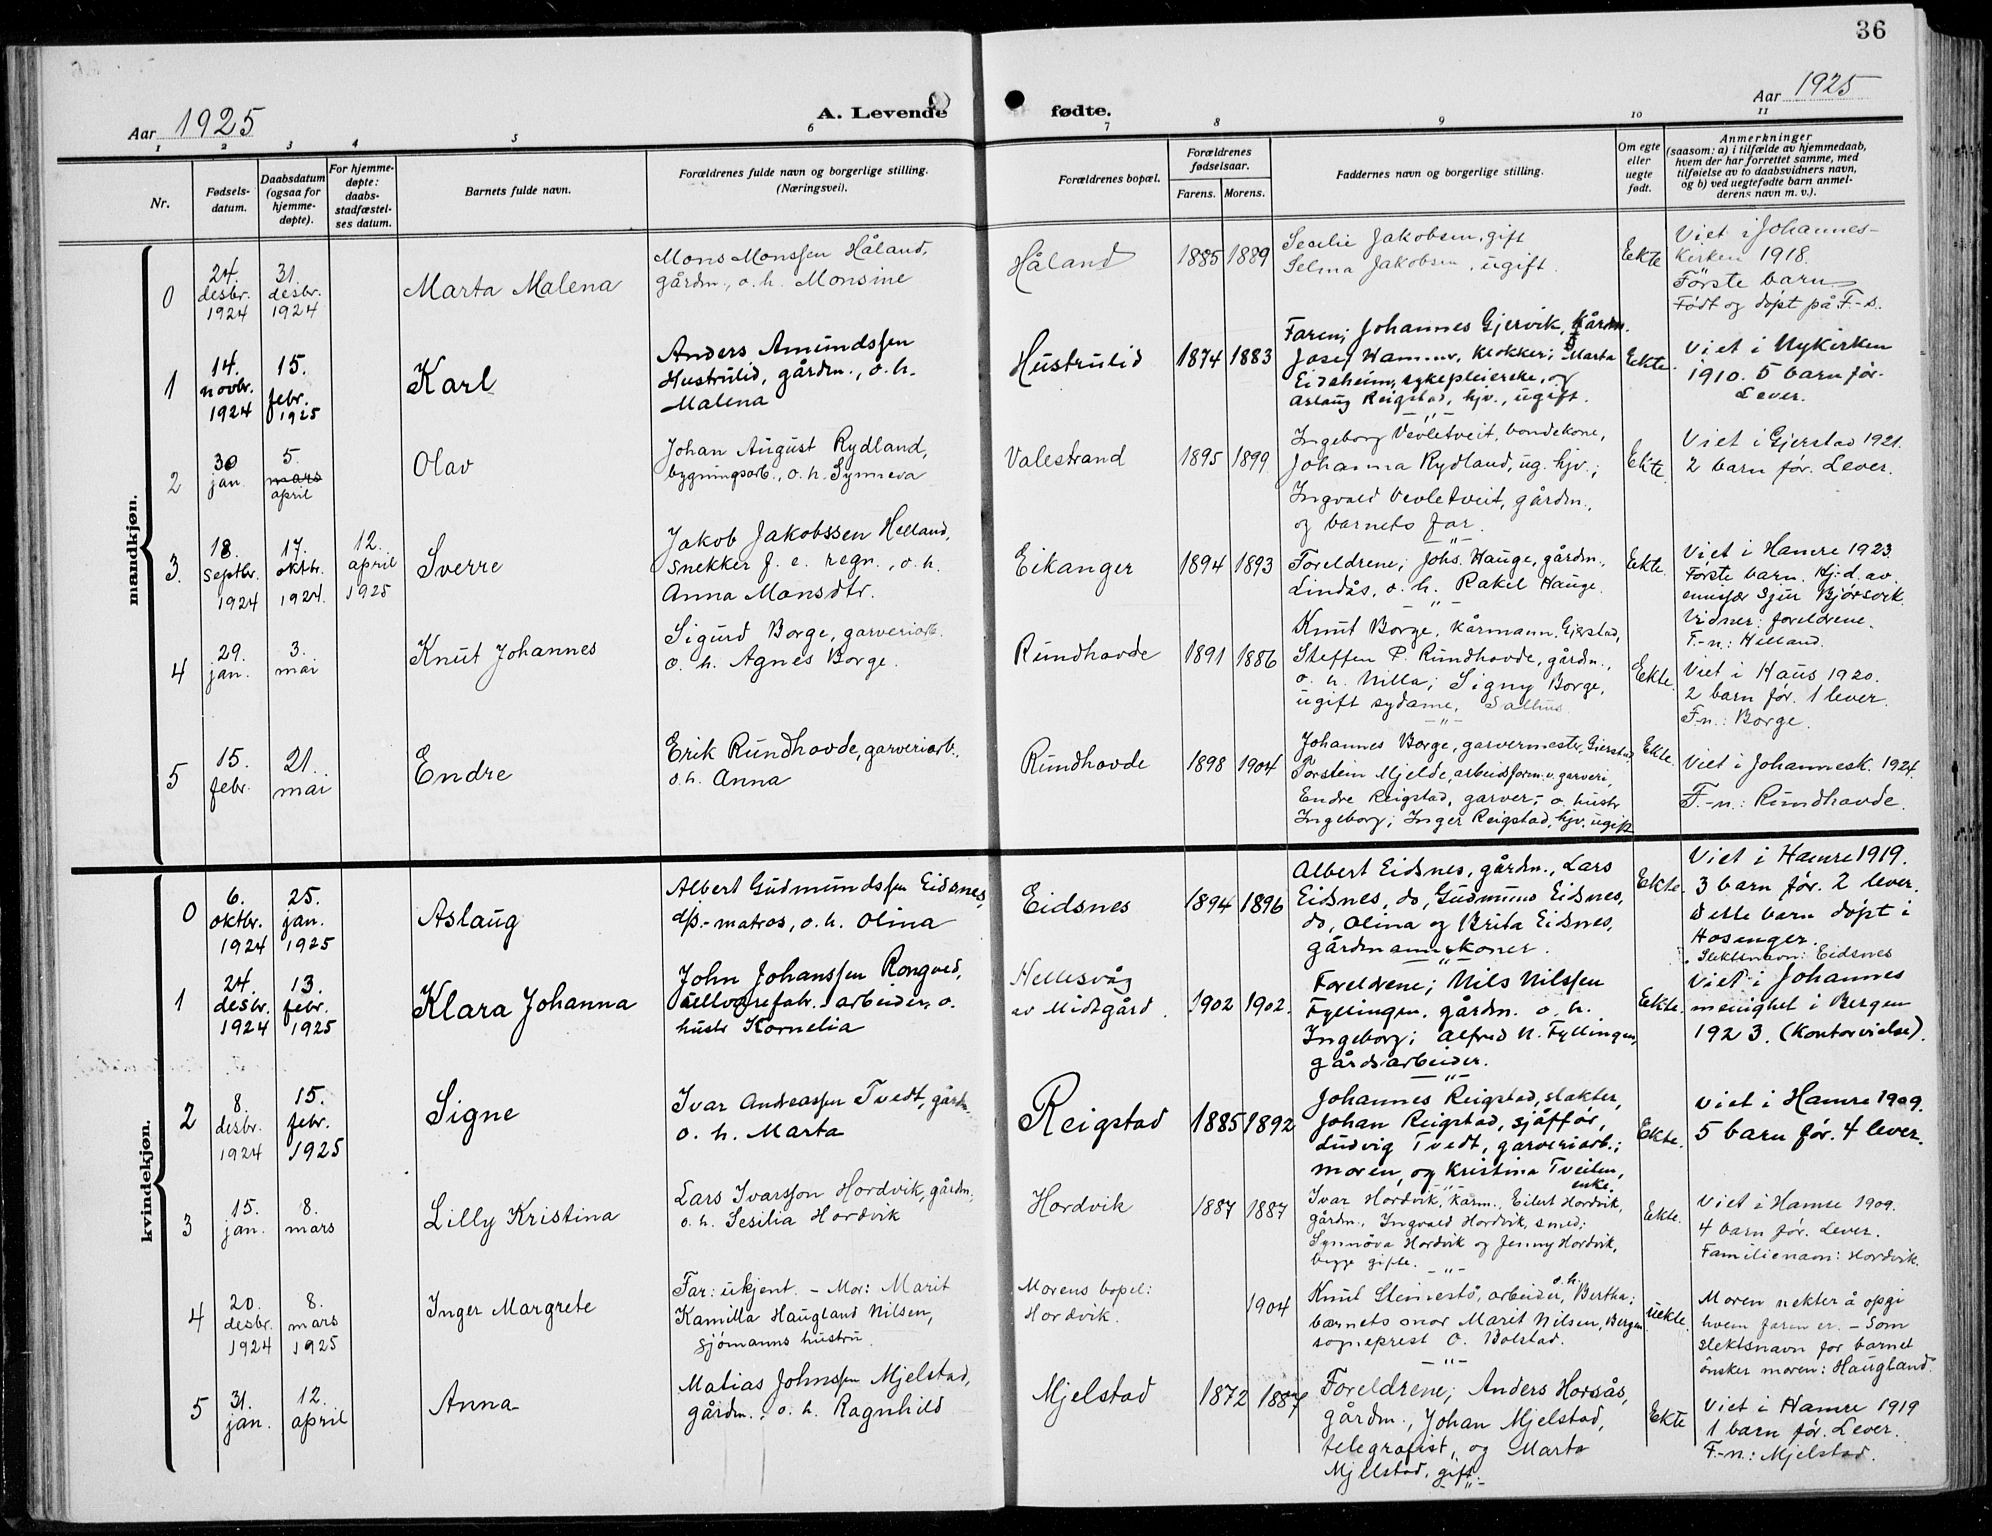 36
Aar 1925
A. Levende fødte.
Aar 1925
1 2 3 4 5 6 7 8 9 10 11
Nr.
Fødsels-
datum.
Daabsdatum
(ogsaa for
hjemme-
døpte).
For hjemme-
døpte:
daabs-
stadfæstel-
ses datum.
Barnets fulde navn.
Forældrenes fulde navn og borgerlige stilling.
(Næringsvei).
Forældrenes bopæl.
Forældrenes
fødselsaar.
Farens. Morens.
Faddernes navn og borgerlige stilling.
Om egte
eller
uegte
født.
Anmerkninger
(saasom: a) i tilfælde av hjemmedaab,
hvem der har forrettet samme, med
tilføielse av to daabsvidners navn,
og b) ved uegtefødte barn anmel-
derens navn m. v.).
mandkjøn.
0
24.
desbr.
1924
31.
desbr.
1924
Marta Malena
Mons Monssen Håland,
gårdm., o. h. Monsine
Håland
1885 1889
Secilie Jakobsen, gift
Selma Jakobsen, ugift.
Ekte
Viet i Johannes-
Kirken 1918.
Første barn
Født og døpt på F-s.
1
14.
novbr.
1924
15.
febr.
1925
Karl
Anders Amundssen
Hustrulid, gårdm., o. h.
Malena
Hustrulid
1874 1883
Faren; Johannes Gjervik, Kårdm.
Josef Hammer, klokker; Marta
Eidsheim, sykepleierske, og
Aslaug Reigstad, hjv., ugift.
Ekte.
Viet i Nykirken
1910. 5 barn før.
Lever.
2
30
jan.
5.
mars
april
Olav
Johan August Rydland,
bygningsarb., o. h. Synneva
Valestrand
1895 1899
Ingeborg Vevletveit, bondekone,
Johanna Rydland, ug. hjv.;
Ingvald Vevletveit, gårdm.,
og barnets far.
Ekte
Viet i Gjerstad 1921.
2 barn før. Lever.
3.
18.
septbr.
1924
17.
oktbr.
1924.
12.
april
1925
Sverre
Jakob Jakobssen Helland,
snekker f. e. regn., o. h.
Anna Monsdtr.
Eikanger
1894 1893
Foreldrene; Johs. Hauge, gårdm.,
Lindås, o. h. Rakel Hauge.
Ekte.
Viet i Hamre 1923
Første barn. Hj:d. av
Sjur Bjørsvik.
Vidner: foreldrene.
F.-n.: Helland.
4
29.
jan.
3.
mai
Knut Johannes
Sigurd Borge, garveriarb.
o. h. Agnes Borge.
Rundhovde
1891 1886
Knut Borge, kårmann, Gjerstad,
Steffen P. Rundhovde, gårdm.,
o. h. Nilla; Signy Borge,
ugift sydame, Salhus.
Ekte.
Viet i Haus 1920.
2 barn før. 1 lever.
F.n.: Borge.
5
15.
febr.
21.
mai
Endre
Erik Rundhovde, garveriarb.,
o. h. Anna
Rundhovde
1898 1904
Johannes Borge, garvermester, Gjerstad,
Torstein Mjelde, arbeidsform. v. garveri,
Endre Reigstad, garver, o. hustr
Ingeborg; Inger Reigstad, hjv. ugift
Ekte.
Viet i Johannesk. 1924.
F.-n.: Rundhovde.
kvindekjøn.
0
6.
oktbr.
1924
25.
jan.
1925
Aslaug
Albert Gudmundssen Eidsnes,
d/s.-matros, o. h. Olina
Eidsnes
1894 1896
Albert Eidsnes, gårdm., Lars
Eidsnes, do, Gudmund Eidsnes,
do, Olina og Brita Eidsnes,
gårdmannskoner.
Ekte.
Viet i Hamre 1919.
3 barn før. 2 lever.
Dette barn døpt i
Hosanger.
Slektsnavn: Eidsnes
1
24.
desbr.
1924
13.
febr.
1925
Klara Johanna
John Johanssen Rongved,
ullvarefabr. arbeider, o.
hustr Kornelia
Hellesvåg
av Midtgård.
1902 1902.
Foreldrene; Nils Nilssen
Fyllingen, gårdm. o. h.
Ingeborg; Alfred N. Fyllingen,
gårdsarbeider.
Ekte.
Viet i Johannes
menighet i Bergen
1923. (Kontorvielse).
2
8.
desbr.
1924
15.
febr.
1925
Signe
Ivar Andreassen Tvedt, gårdm.
o. h. Marta
Reigstad
1885 1892
Johannes Reigstad, slakter,
Johan Reigstad, sjåffør,
Ludvig Tvedt, garveriarb.;
moren, og Kristina Tveiten,
enke
Ekte.
Viet i Hamre 1909.
5 barn før. 4 lever.
3
15.
jan.
8.
mars
Lilly Kristina
Lars Ivarsson Hordvik, gårdm.
o. h. Sesilia Hordvik
Hordvik
1887 1887
Ivar Hordvik, kårm., Eilert Hordvik,
gårdm., Ingvald Hordvik, smed;
Synnøva Hordvik og Jenny Hordvik,
begge gifte.
Ekte.
Viet i Hamre 1909.
4 barn før. Lever.
Familienavn: Hordvik.
4
20.
desbr.
1924
8.
mars
1925
Inger Margrete
Far: ukjent. - Mor: Marit
Kamilla Haugland Nilsen,
sjømanns hustru.
Morens bopel:
Hordvik.
1904
Knut Steinestø, arbeider, o. h. Bertha;
barnets mor Marit Nilsen, Bergen
sogneprest O. Bolstad.
uekte.
Moren nekter å opgi
hvem faren er. - Som
slektsnavn for barnet
ønsker moren: Haugland.
5
31.
jan.
12.
april
Anna
Matias Johnssen Mjelstad,
gårdm., o. h. Ragnhild
Mjelstad
1872 1887
Foreldrene; Anders Horsås,
gårdm., Johan Mjelstad,
telegrafist, og Marta
Mjelstad, gift.
Ekte
Viet i Hamre 1919
1 barn før. Lever.
F.-n.: Mjelstad.